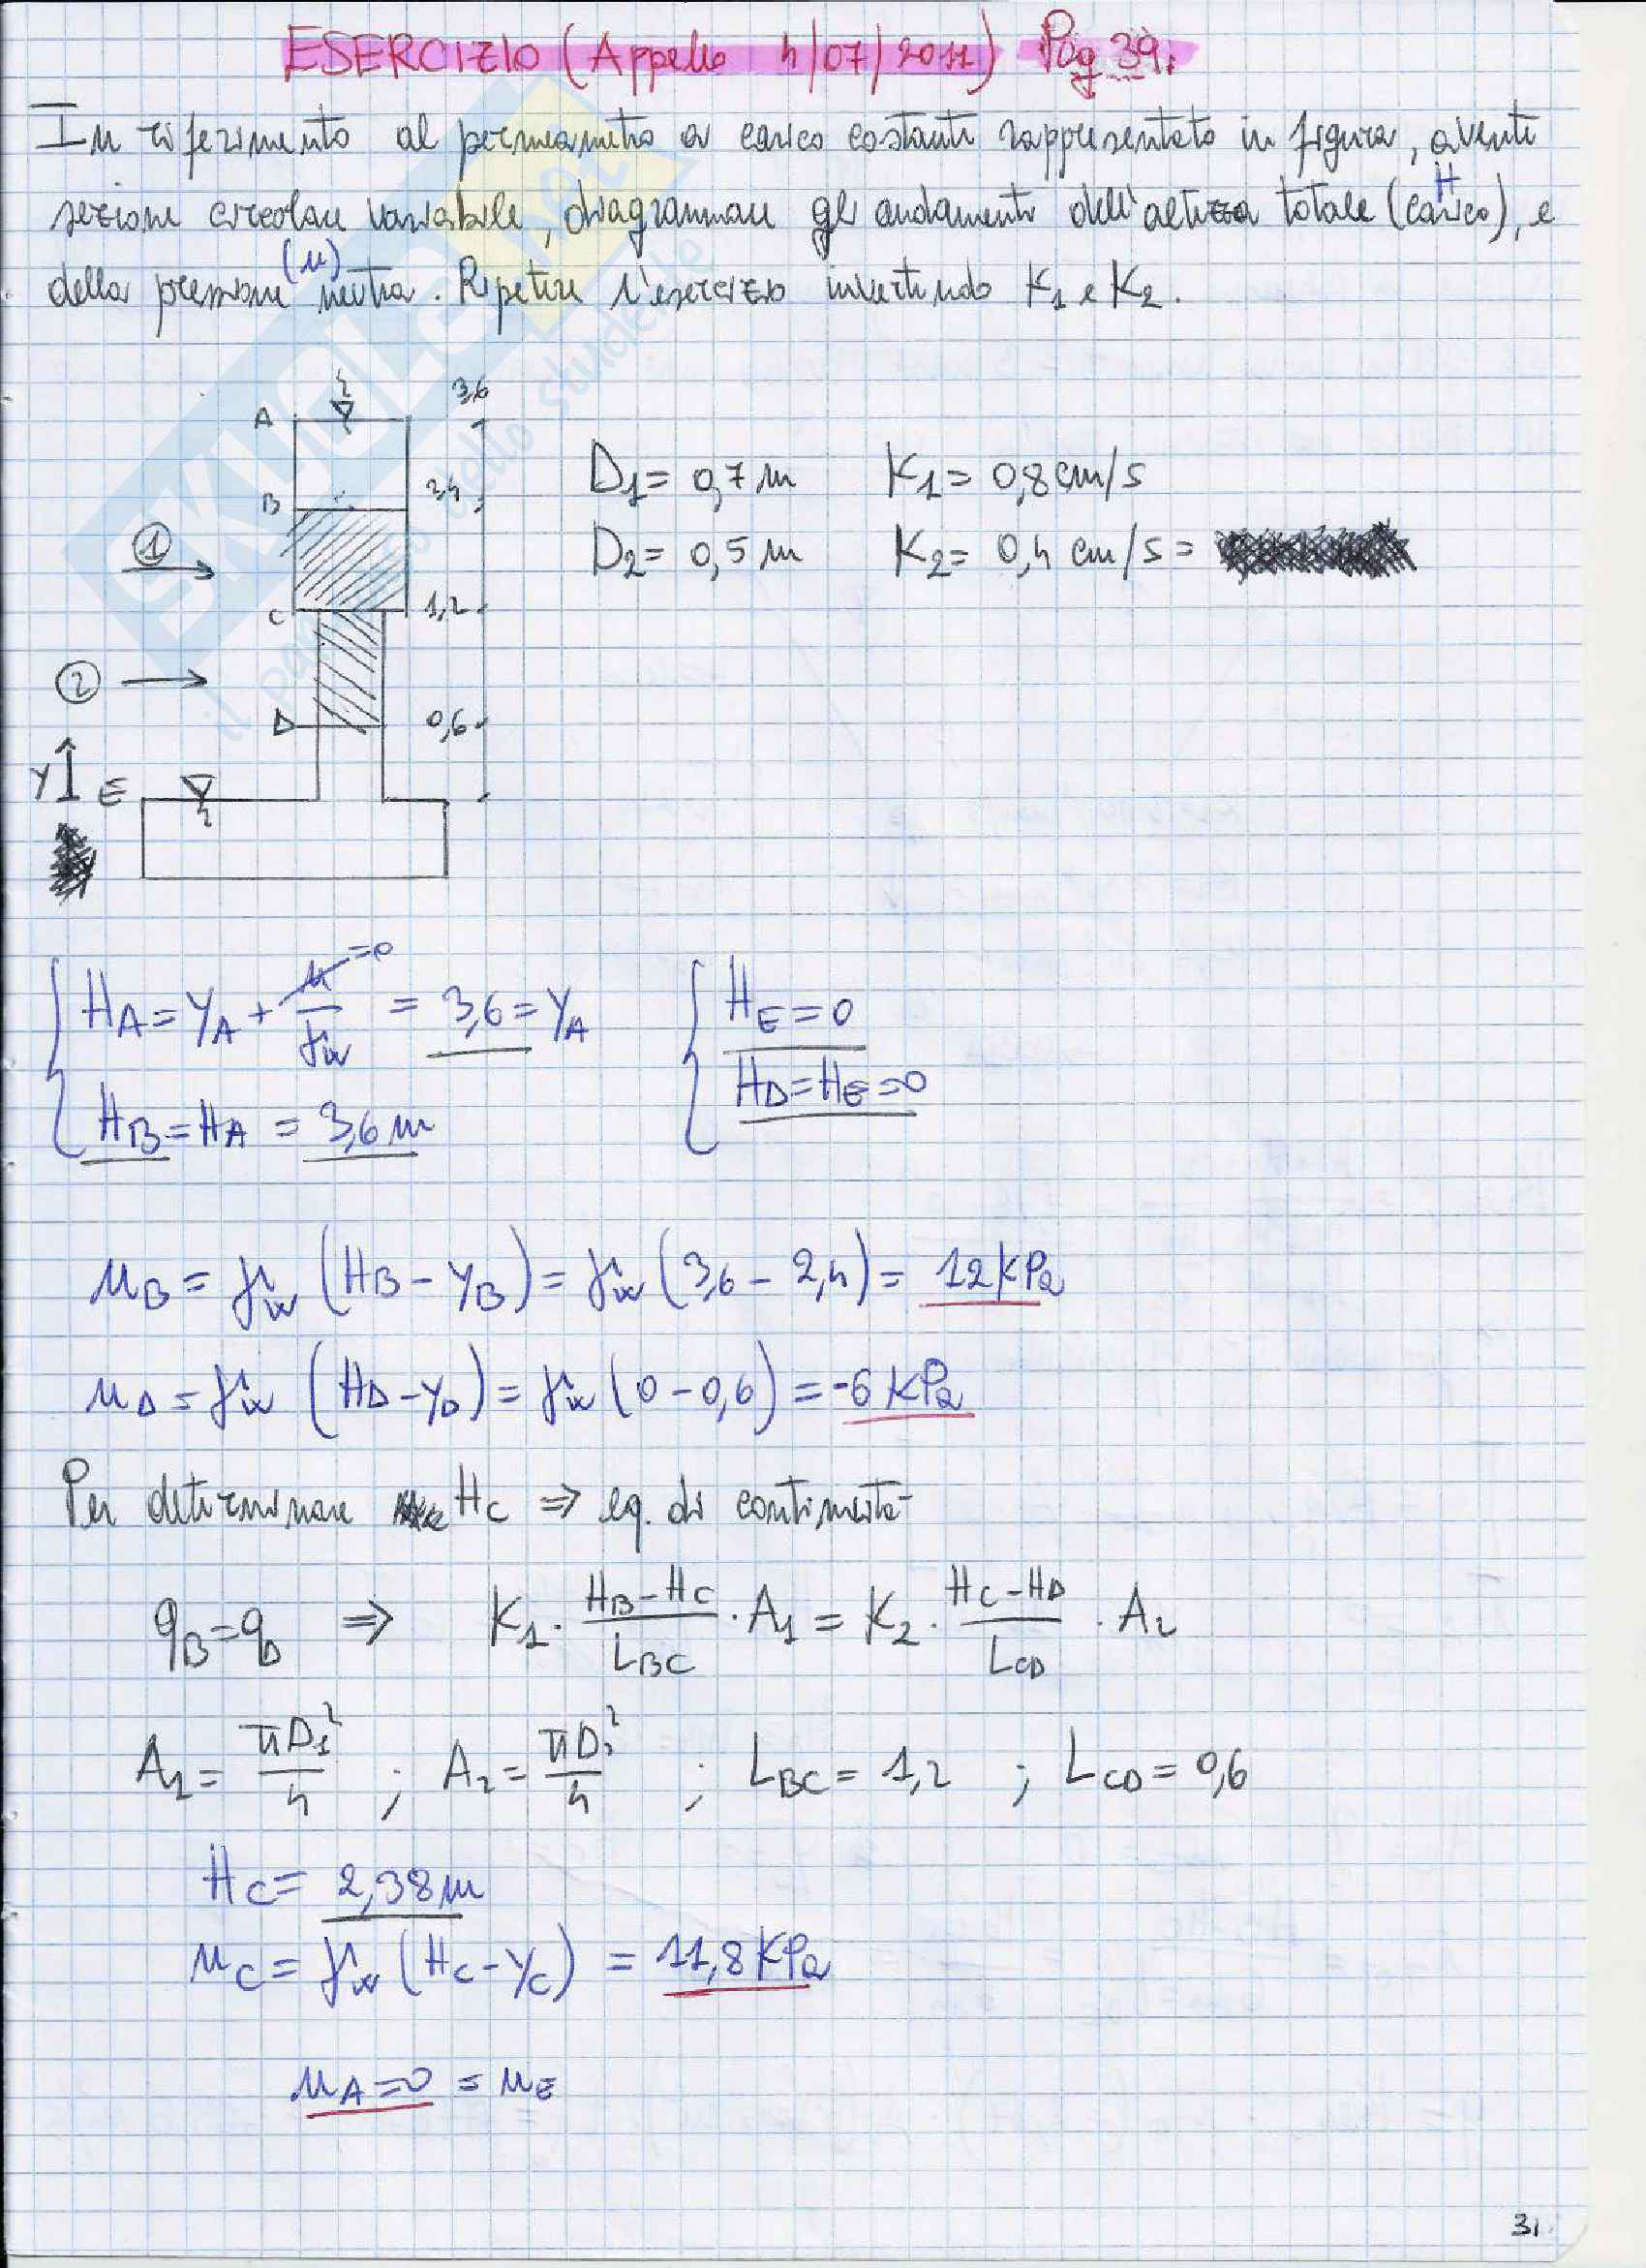 ESERCIZIO (Appello 4/07/2011) Pag 39.
In riferimento al permeametro a carico costante rappresentato in figura, avente
sezione circolare variabile, diagrammare gli andamenti dell'altezza totale (carico), e
H
della pressione neutra. Ripetere l'esercizio invertendo K1 e K2.
(u)
A 3,6
B 2,4
1
C 1,2
2
D 0,6
y E
D1= 0,7 m K1= 0,8 cm/s
D2= 0,5 m K2= 0,4 cm/s =
HA = yA + u/γw = 3,6 = yA
=0
HB = HA = 3,6 m
HE = 0
HD = HE = 0
uB = γw (HB - yB) = γw (3,6 - 2,4) = 12 kPa
uD = γw (HD - yD) = γw (0 - 0,6) = -6 kPa
Per determinare HC ⇒ eq. di continuità
qB = qD ⇒ K1 · (HB - HC)/LBC · A1 = K2 · (HC - HD)/LCD · A2
A1 = πD1²/4 ; A2 = πD2²/4 ; LBC = 1,2 ; LCD = 0,6
HC = 2,38 m
uC = γw (HC - yC) = 11,8 KPa
uA = 0 = uE
31
SKUOLA.net
il paradiso dello studente